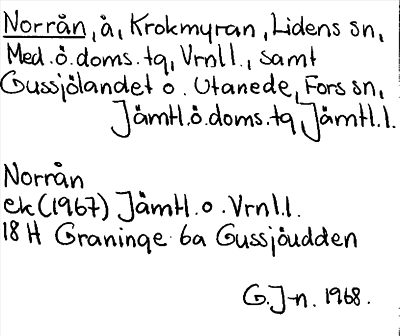 Norrån, å, Krokmyran, Lidens sn,
Med.ö.doms.tg, Vrnl l., samt
Gussjölandet o. Utanede, Fors sn,
Jämtl.ö.doms.tg Jämtl.l.
Norrån
ek(1967) Jämtl.o.Vrnl.l.
18 H Graninge 6a Gussjöudden
G.J-n. 1968.